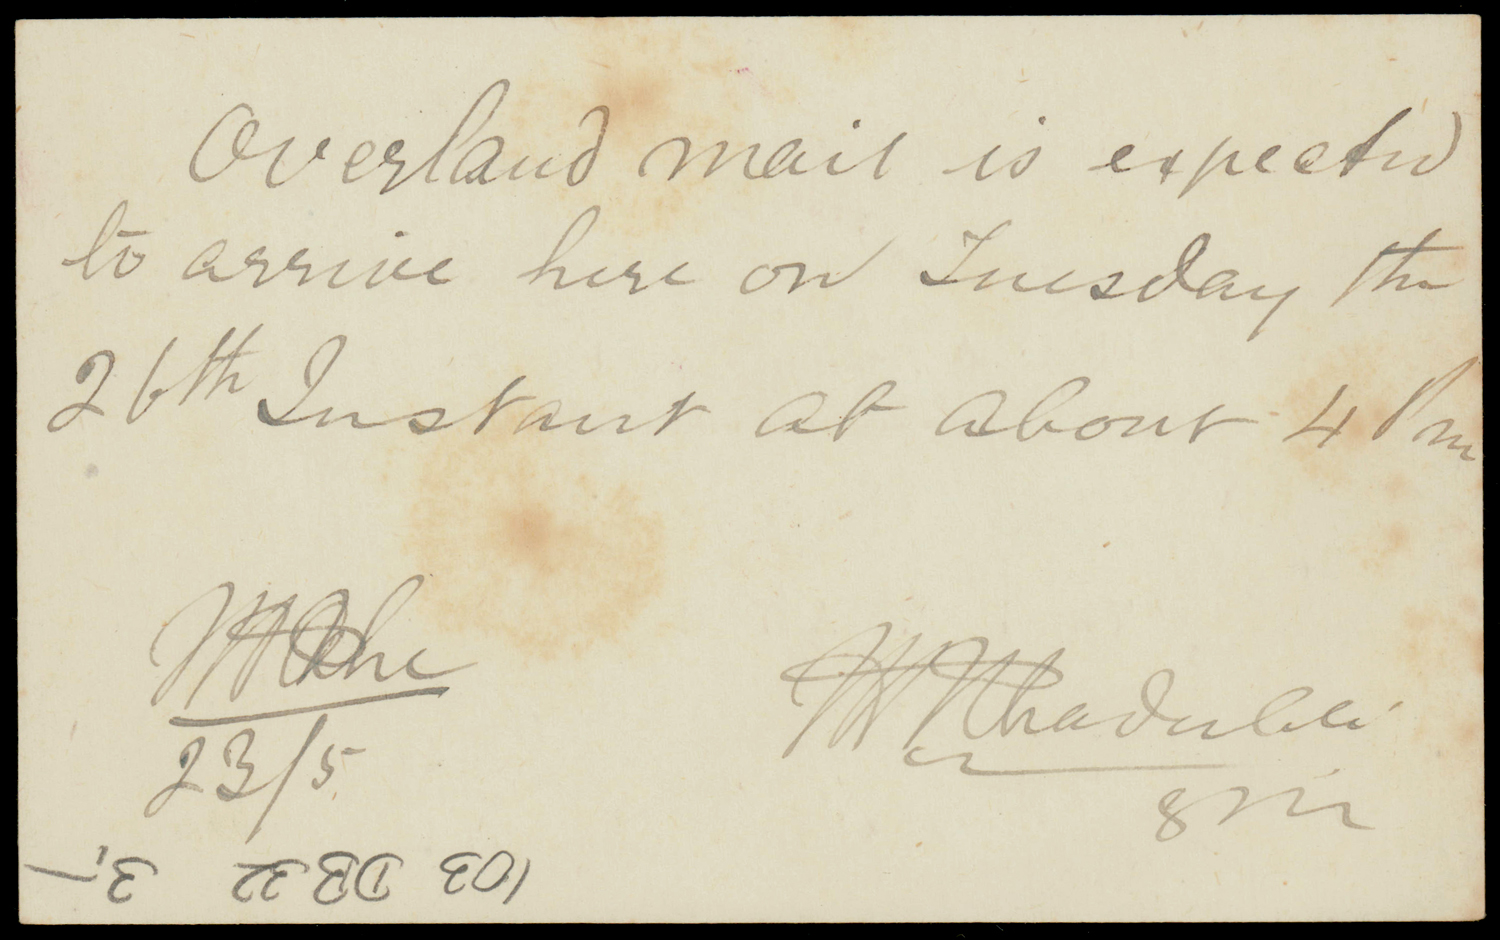 Overland mail is expected
to arrive here on Tuesday the
26th Instant at about 4 Pm
23/5
103 DB32 3,-